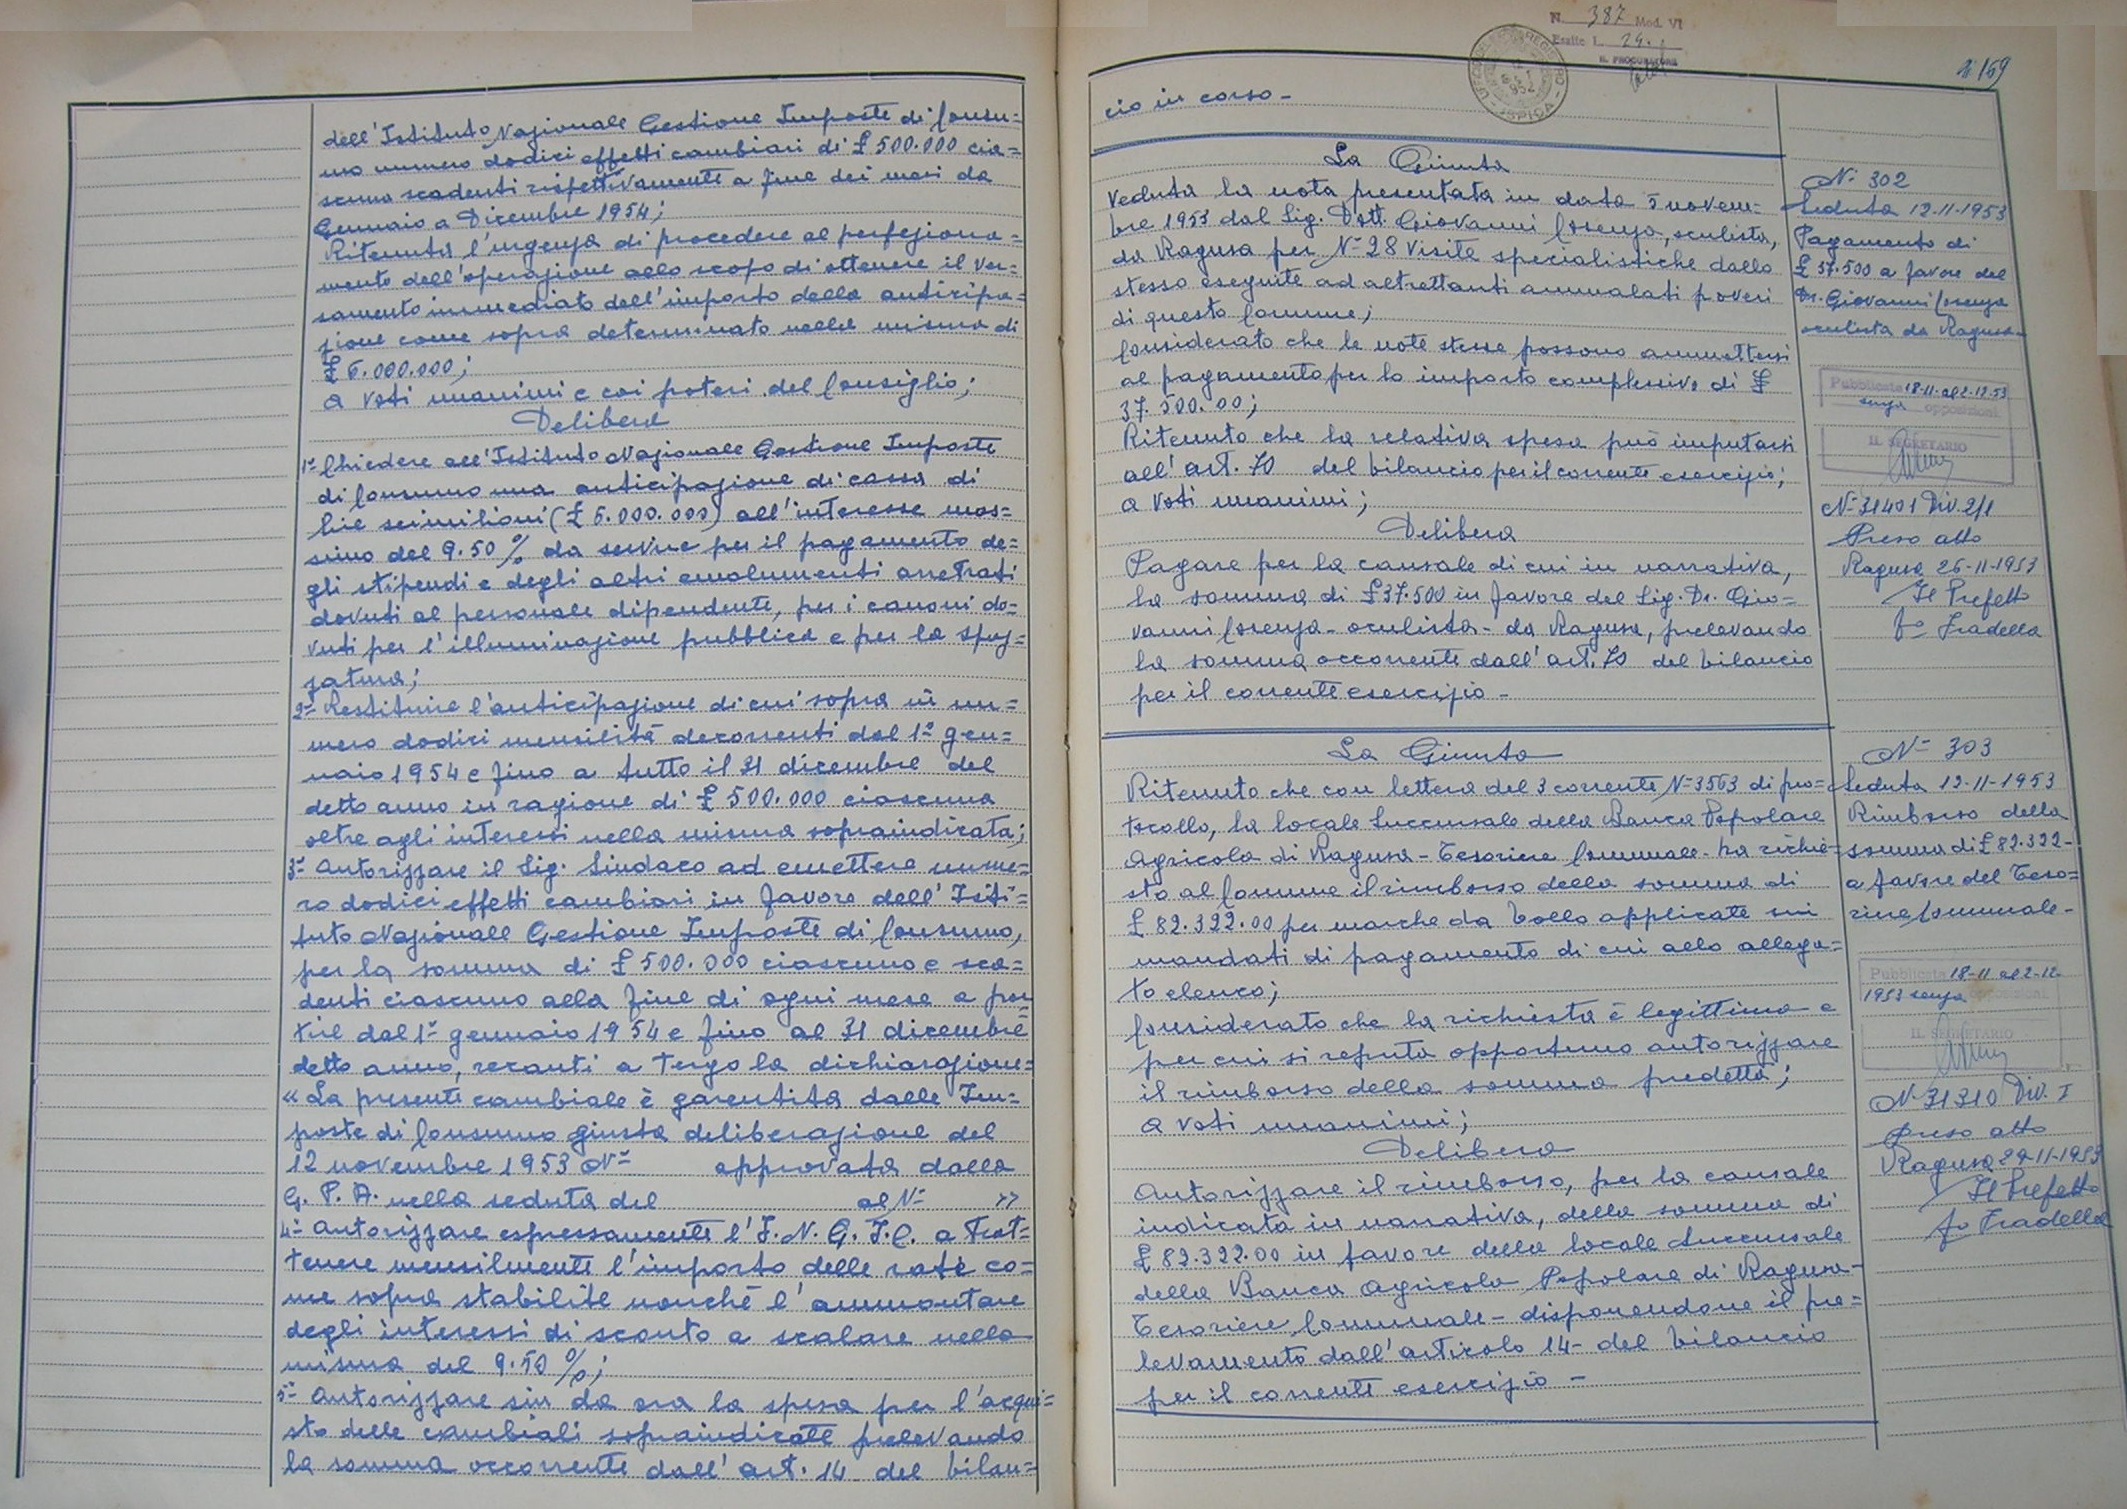 dell'Istituto Nazionale Gestione Imposte di Consu=
mo numero dodici effetti cambiari di £ 500.000 cia=
scuno scadenti rispettivamente a fine dei mesi da
Gennaio a Dicembre 1954;
Ritenuta l'urgenza di procedere al perfeziona=
mento dell'operazione allo scopo di ottenere il ver=
samento immediato dell'importo della anticipa=
zione come sopra determinato nella misura di
£ 6.000.000;
a voti unanimi e coi poteri del Consiglio;
Delibera
1°- Chiedere all'Istituto Nazionale Gestione Imposte
di Consumo una anticipazione di cassa di
lire seimilioni (£ 6.000.000) all'interesse mas=
simo del 9.50 % da servire per il pagamento de=
gli stipendi e degli altri emolumenti arretrati
dovuti al personale dipendente, per i canoni do=
vuti per l'illuminazione pubblica e per la spaz=
zatura;
2°- Restituire l'anticipazione di cui sopra in nu=
mero dodici mensilità decorrenti dal 1° gen=
naio 1954 e fino a tutto il 31 dicembre del
detto anno in ragione di £ 500.000 ciascuna
oltre agli interessi nella misura sopraindicata;
3°- Autorizzare il Sig. Sindaco ad emettere nume=
ro dodici effetti cambiari in favore dell'Isti=
tuto Nazionale Gestione Imposte di Consumo,
per la somma di £ 500.000 ciascuno e sca=
denti ciascuno alla fine di ogni mese a par
tire dal 1° gennaio 1954 e fino al 31 dicembre
detto anno, recanti a tergo la dichiarazione=
« La presente cambiale è garentita dalle Im=
poste di Consumo giusta deliberazione del
12 novembre 1953 N° approvata dalla
G. P. A. nella seduta del al N° »
4°- Autorizzare espressamente l'I.N.G.I.C. a trat=
tenere mensilmente l'importo delle rate co=
me sopra stabilite nonchè l'ammontare
degli interessi di sconto a scalare nella
misura del 9.50 %;
5°- Autorizzare sin da ora la spesa per l'acqui=
sto delle cambiali sopraindicate prelevando
la somma occorrente dall'art. 14 del bilan=
N. 387 Mod. VI
Esatte L. 24.
IL PROCURATORE
159
cio in corso -
La Giunta
Veduta la nota presentata in data 5 novem=
bre 1953 dal Sig. Dott. Giovanni Cosenza, oculista,
da Ragusa per N° 28 visite specialistiche dallo
stesso eseguite ad altrettanti ammalati poveri
di questo Comune;
Considerato che le note stesse possono ammettersi
al pagamento per lo importo complessivo di £
37.500.00;
Ritenuto che la relativa spesa può imputarsi
all'art. 70 del bilancio per il corrente esercizio;
a voti unanimi;
Delibera
Pagare per la causale di cui in narrativa,
la somma di £ 37.500 in favore del Sig. Dr. Gio=
vanni Cosenza - oculista - da Ragusa, prelevando
la somma occorrente dall'art. 70 del bilancio
per il corrente esercizio -
N° 302
Seduta 12-11-1953
Pagamento di
£ 37.500 a favore del
Dr. Giovanni Cosenza
oculista da Ragusa-
Pubblicata 18-11 al 2-12-53
senza opposizioni
IL SEGRETARIO
N° 31401 Div. 2/1
Preso atto
Ragusa 26-11-1953
Il Prefetto
fo Fradella
La Giunta
Ritenuto che con lettera del 3 corrente N° 3563 di pro=
tocollo, la locale Succursale della Banca Popolare
Agricola di Ragusa - Tesoriere Comunale - ha richie=
sto al Comune il rimborso della somma di
£ 82.322.00 per marche da bollo applicate sui
mandati di pagamento di cui allo allega=
to elenco;
Considerato che la richiesta è legittima e
per cui si reputa opportuno autorizzare
il rimborso della somma predetta;
a voti unanimi;
Delibera
Autorizzare il rimborso, per la causale
indicata in narrativa, della somma di
£ 82.322.00 in favore della locale Succursale
della Banca Agricola Popolare di Ragusa-
Tesoriere Comunale - disponendone il pre=
levamento dall'articolo 14- del bilancio
per il corrente esercizio -
N° 303
Seduta 12-11-1953
Rimborso della
somma di £ 82.322-
a favore del Teso=
riere Comunale-
Pubblicata 18-11 al 2-12-
1953 senza opposizioni
IL SEGRETARIO
N° 31310 Div. I
Preso atto
Ragusa 27-11-1953
Il Prefetto
fo Fradella